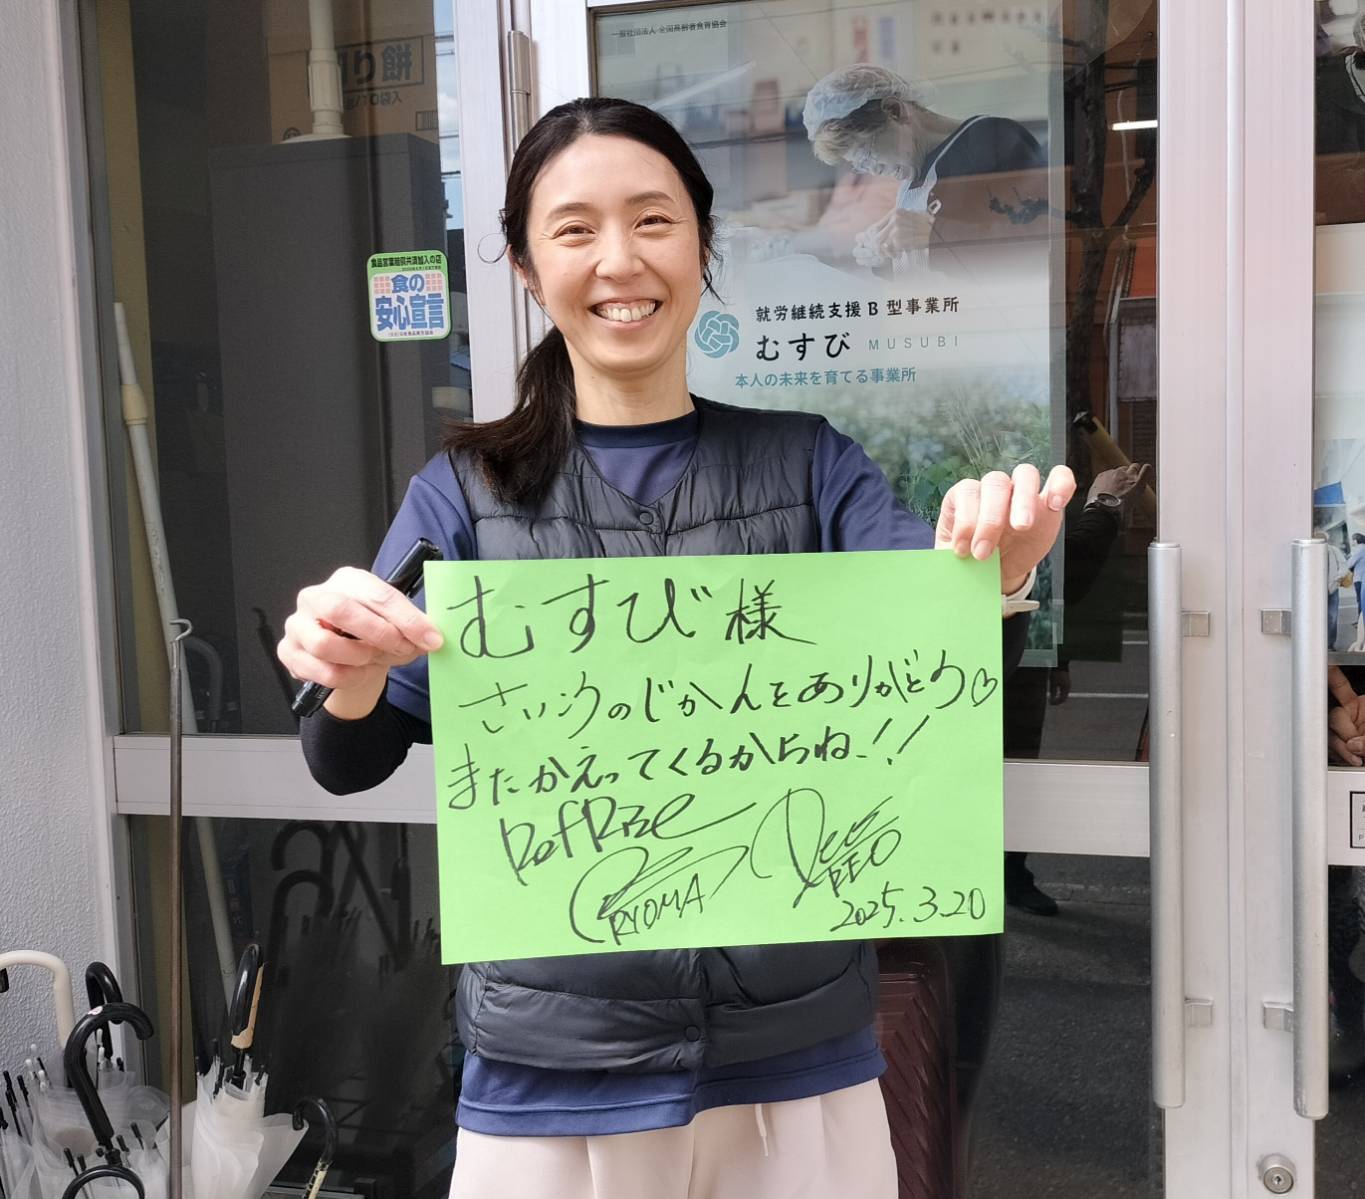 一般社団法人 全国高齢者食育協会
切り餅
食品営業賠償共済加入の店
食の
安心宣言
就労継続支援B型事業所
むすび MUSUBI
本人の未来を育てる事業所
むすび様
さいこうのじかんをありがとう♡
またかえってくるからね!!
RYOMA
REO
2025.3.20